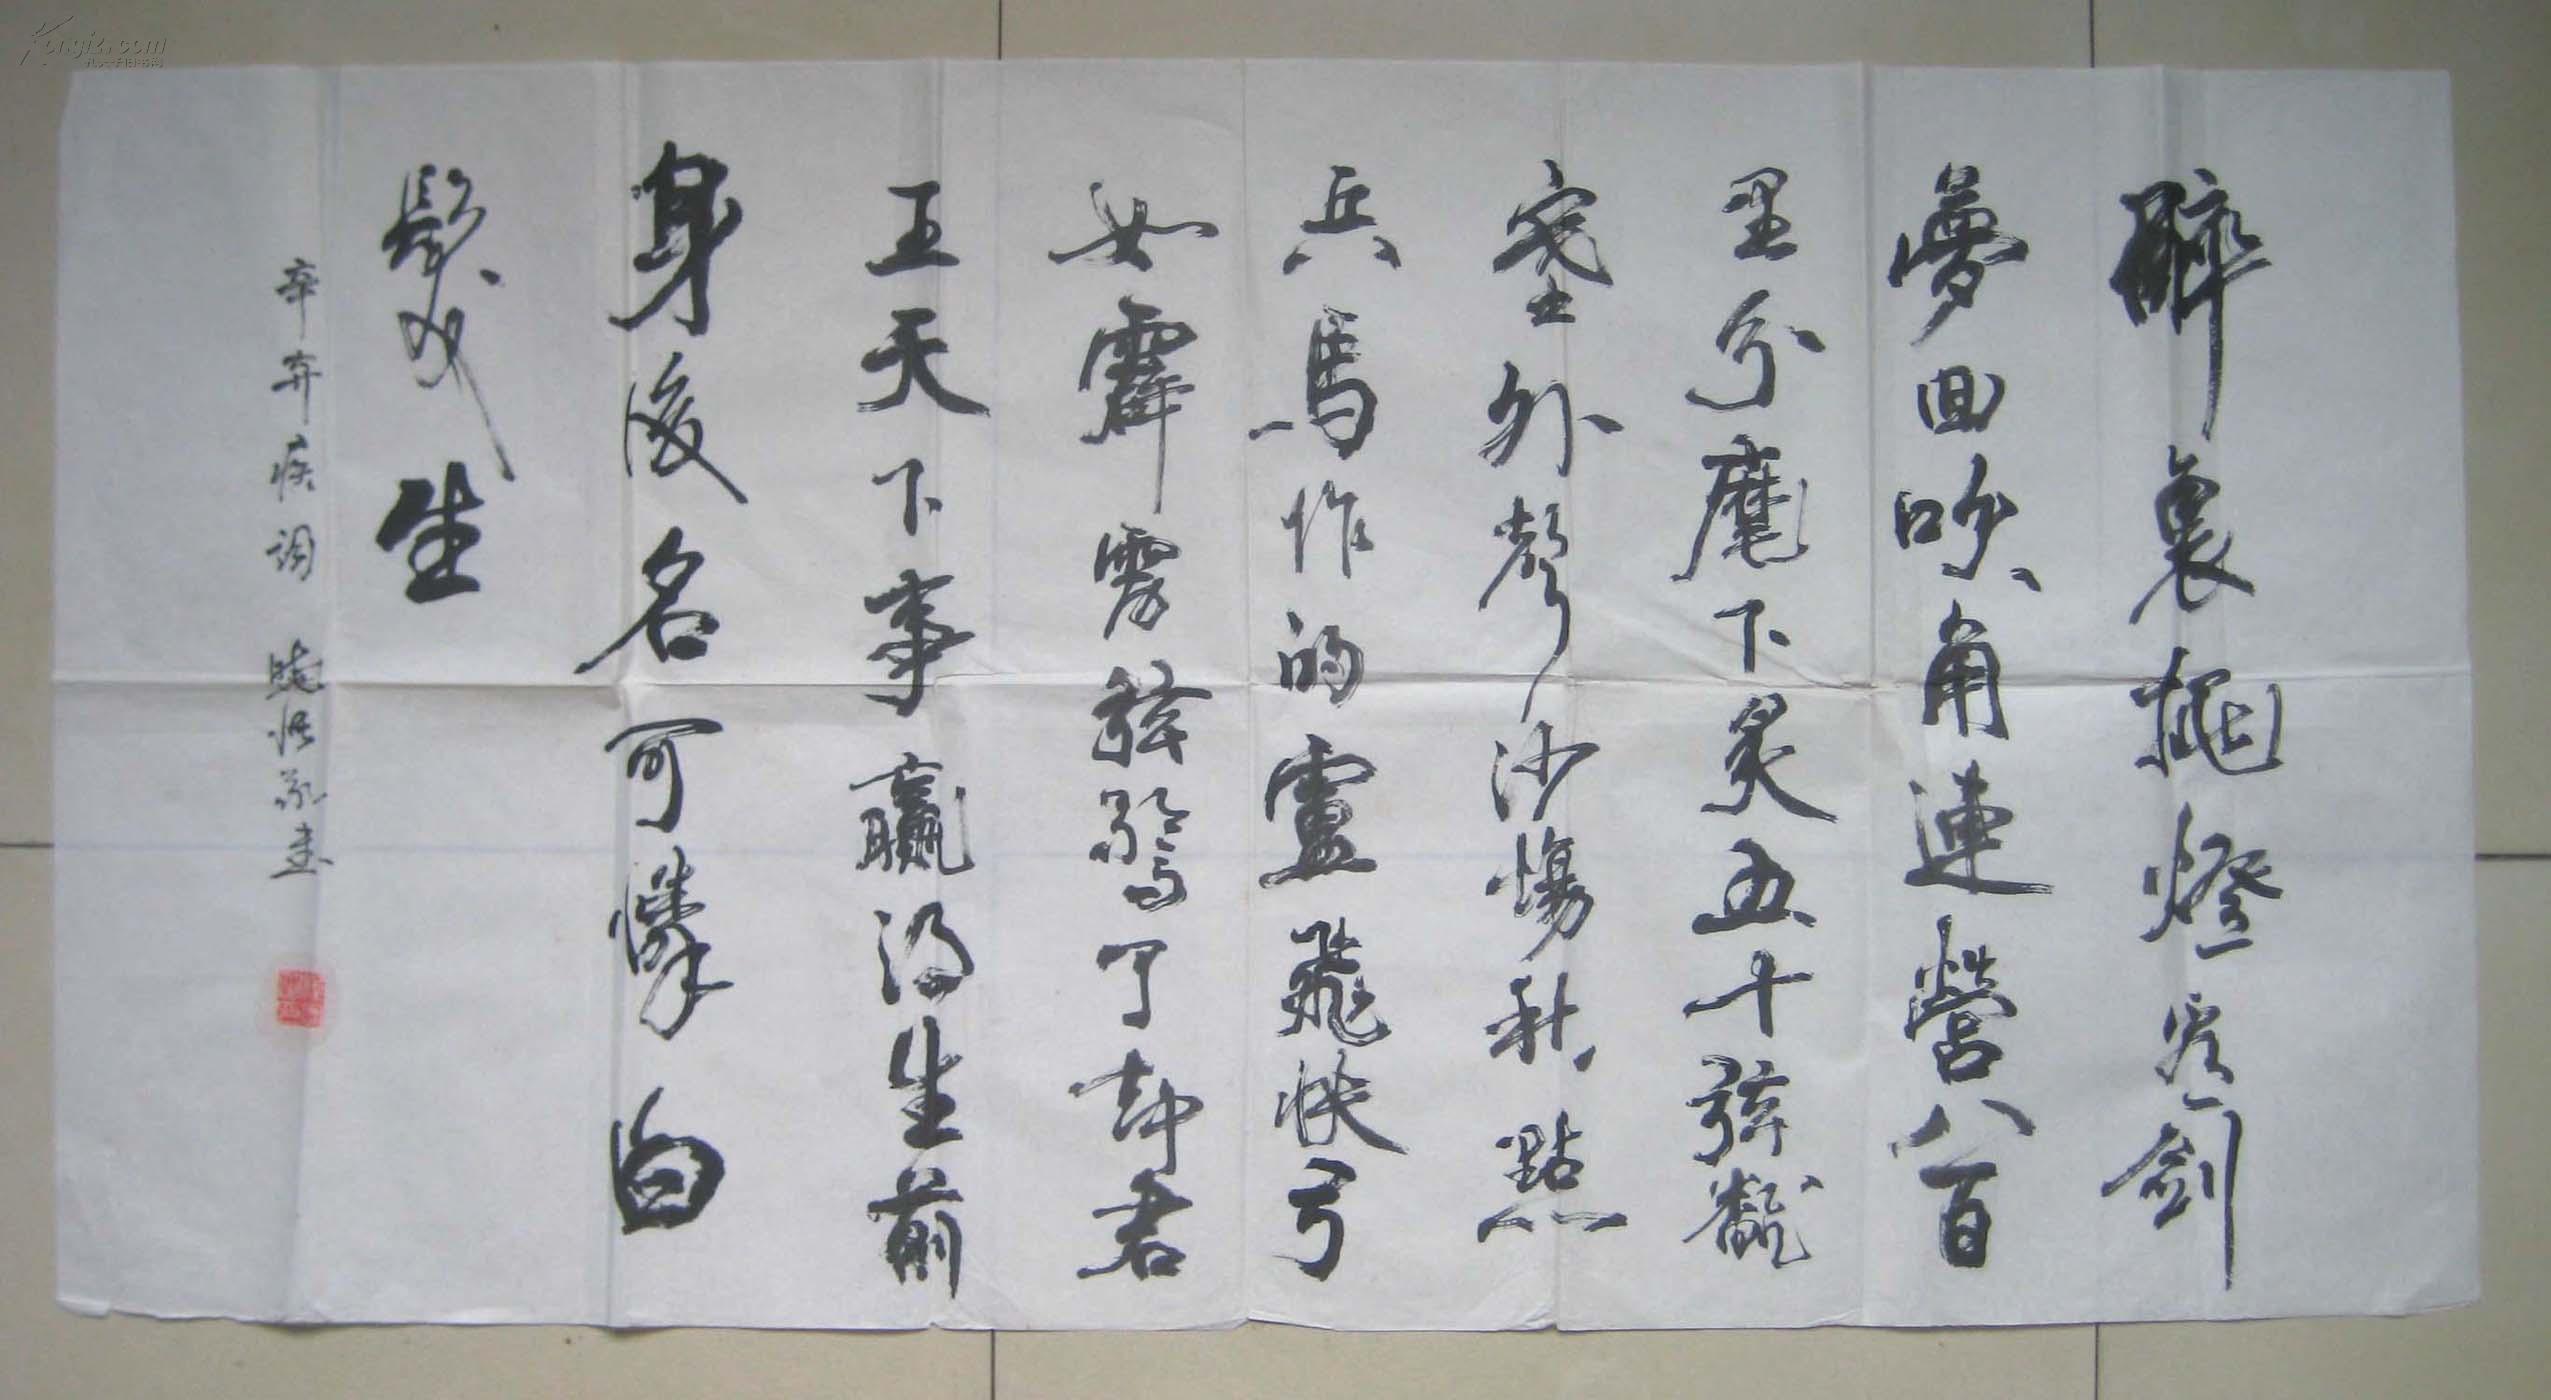 醉裏挑燈看劍
夢回吹角連營八百
里分麾下炙五十弦翻
塞外聲沙場秋點
兵馬作的盧飛快弓
如霹雳弦驚了却君
王天下事贏得生前
身後名可憐白
髮生
辛弃疾詞 書
Kongfz.com
孔夫子旧书网